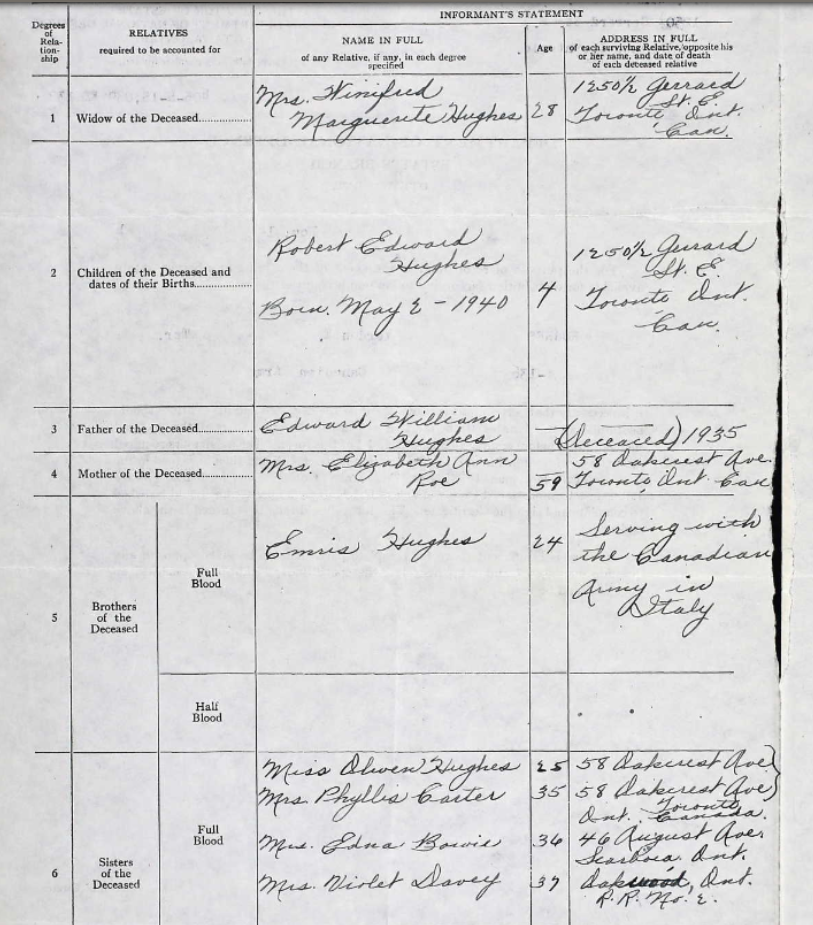 INFORMANT'S STATEMENT
Degrees of Rela- tion- ship
RELATIVES
required to be accounted for
NAME IN FULL
of any Relative, if any, in each degree specified
Age
ADDRESS IN FULL
of each surviving Relative, opposite his or her name, and date of death of each deceased relative
1 Widow of the Deceased
Mrs. Winifred
Marguerite Hughes
28
1250½ Gerrard
St. E.
Toronto Ont.
Can.
2 Children of the Deceased and
dates of their Births
Robert Edward
Hughes
Born. May 2 - 1940
4
1250½ Gerrard
St. E.
Toronto Ont.
Can.
3 Father of the Deceased
Edward William
Hughes
(Deceased) 1935
4 Mother of the Deceased
Mrs. Elizabeth Ann
Roe
59
58 Oakcrest Ave.
Toronto, Ont. Can
5 Brothers
of the
Deceased
Full
Blood
Emris Hughes
24
Serving with
the Canadian
Army in
Italy
Half
Blood
6 Sisters
of the
Deceased
Full
Blood
Miss Olwen Hughes 25 58 Oakcrest Ave)
Mrs. Phyllis Carter 35 58 Oakcrest Ave)
Toronto
Ont. Canada.
Mrs. Edna Bowie 36 46 August Ave.
Scarboro. Ont.
Mrs. Violet Davey 37 Oakwood, Ont.
R.R. No. 2.